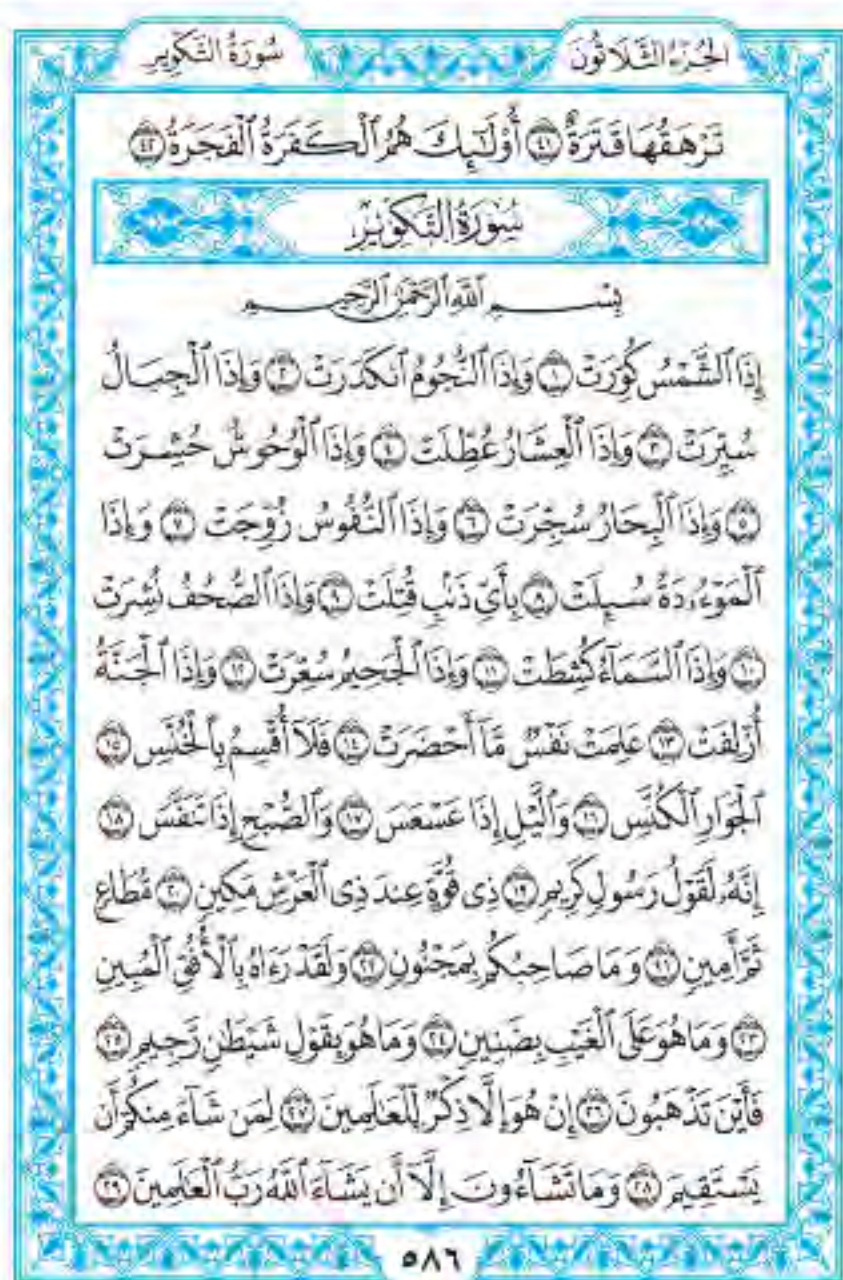 الجُزءُ الثَّلَاثُونَ
سُورَةُ التَّكْوِيرِ
تَرْهَقُهَا قَتَرَةٌ ٤١ أُوْلَٰٓئِكَ هُمُ ٱلْكَفَرَةُ ٱلْفَجَرَةُ ٤٢
سُورَةُ التَّكْوِيرِ
بِسْمِ ٱللَّهِ ٱلرَّحْمَٰنِ ٱلرَّحِيمِ
إِذَا ٱلشَّمْسُ كُوِّرَتْ ١ وَإِذَا ٱلنُّجُومُ ٱنكَدَرَتْ ٢ وَإِذَا ٱلْجِبَالُ
سُيِّرَتْ ٣ وَإِذَا ٱلْعِشَارُ عُطِّلَتْ ٤ وَإِذَا ٱلْوُحُوشُ حُشِرَتْ
٥ وَإِذَا ٱلْبِحَارُ سُجِّرَتْ ٦ وَإِذَا ٱلنُّفُوسُ زُوِّجَتْ ٧ وَإِذَا
ٱلْمَوْءُۥدَةُ سُئِلَتْ ٨ بِأَيِّ ذَنۢبٍ قُتِلَتْ ٩ وَإِذَا ٱلصُّحُفُ نُشِرَتْ
١٠ وَإِذَا ٱلسَّمَآءُ كُشِطَتْ ١١ وَإِذَا ٱلْجَحِيمُ سُعِّرَتْ ١٢ وَإِذَا ٱلْجَنَّةُ
أُزْلِفَتْ ١٣ عَلِمَتْ نَفْسٌ مَّآ أَحْضَرَتْ ١٤ فَلَآ أُقْسِمُ بِٱلْخُنَّسِ ١٥
ٱلْجَوَارِ ٱلْكُنَّسِ ١٦ وَٱلَّيْلِ إِذَا عَسْعَسَ ١٧ وَٱلصُّبْحِ إِذَا تَنَفَّسَ ١٨
إِنَّهُۥ لَقَوْلُ رَسُولٍ كَرِيمٍ ١٩ ذِى قُوَّةٍ عِندَ ذِى ٱلْعَرْشِ مَكِينٍ ٢٠ مُّطَاعٍ
ثَمَّ أَمِينٍ ٢١ وَمَا صَاحِبُكُم بِمَجْنُونٍ ٢٢ وَلَقَدْ رَءَاهُ بِٱلْأُفُقِ ٱلْمُبِينِ
٢٣ وَمَا هُوَ عَلَى ٱلْغَيْبِ بِضَنِينٍ ٢٤ وَمَا هُوَ بِقَوْلِ شَيْطَٰنٍ رَّجِيمٍ ٢٥
فَأَيْنَ تَذْهَبُونَ ٢٦ إِنْ هُوَ إِلَّا ذِكْرٌ لِّلْعَٰلَمِينَ ٢٧ لِمَن شَآءَ مِنكُمْ أَن
يَسْتَقِيمَ ٢٨ وَمَا تَشَآءُونَ إِلَّآ أَن يَشَآءَ ٱللَّهُ رَبُّ ٱلْعَٰلَمِينَ ٢٩
٥٨٦